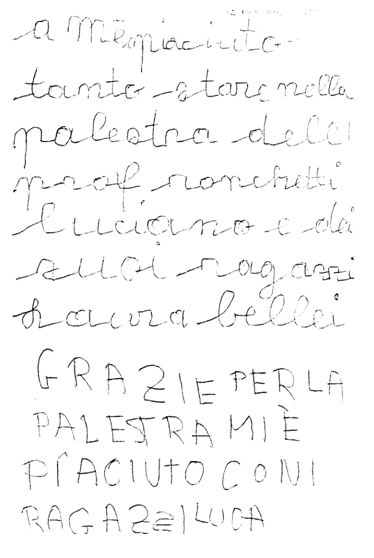 a me è piaciuto
tanto stare nella
palestra dell
prof ronchetti
luciano e dei
suoi ragazzi
Laura bellei
GRAZIE PER LA
PALESTRA MI È
PIACIUTO CON I
RAGAZZI LUCA